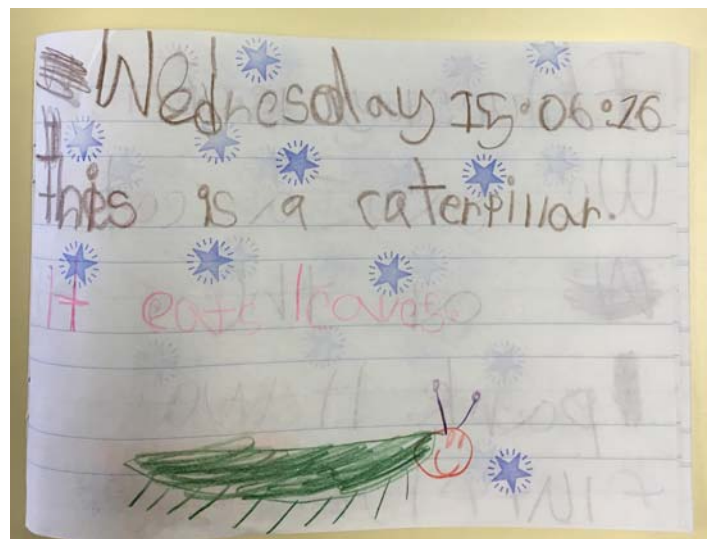 Wednesday 15.06.16
this is a caterpillar.
It eats leaves.